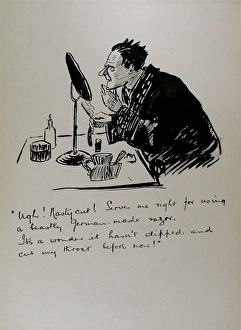 "Ugh! Nasty cut! Serves me right for using
a beastly German-made razor.
It's a wonder it hasn't slipped, and
cut my throat before now!"